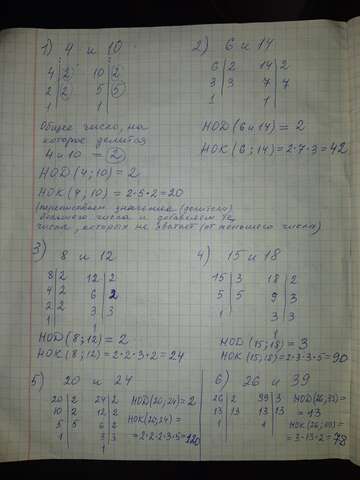 1) 4 и 10
4 | 2 10 | 2
2 | 2 5 | 5
1 1
Общее число, на
которое делится
4 и 10 = 2
НОD (4; 10) = 2
НОК (4; 10) = 2·5·2=20
(переписываем значения (делители)
большего числа и добавляем те
числа, которых не хватает (от меньшего числа)
2) 6 и 14
6 | 2 14 | 2
3 | 3 7 | 7
1 1
НОD (6 и 14) = 2
НОК (6; 14) = 2·7·3=42
3) 8 и 12
8 | 2 12 | 2
4 | 2 6 | 2
2 | 2 3 | 3
1 1
НОD (8; 12) = 2
НОК (8; 12) = 2·2·3·2=24
4) 15 и 18
15 | 3 18 | 2
5 | 5 9 | 3
1 3 | 3
1
НОD (15; 18) = 3
НОК (15; 18) = 2·3·3·5=90
5) 20 и 24
20 | 2 24 | 2
10 | 2 12 | 2
5 | 5 6 | 2
1 3 | 3
1
НОD (20; 24) = 2
НОК (20; 24) =
= 2·2·2·3·5=120
6) 26 и 39
26 | 2 39 | 3
13 | 13 13 | 13
1 1
НОD (26; 39) =
= 13
НОК (26; 39) =
= 3·13·2=78